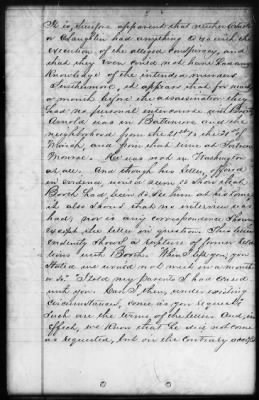 It is, therefore apparent that neither Arnold
or O'Laughlin had anything to do with the
execution, of the alleged Conspiracy, and
had they even could not have had any
Knowledge of the intended murder.
Furthermore, it appears that for nearly
a month before the assassination they
had no personal intercourse with Booth.
Arnold was in Baltimore and the
neighborhood from the 21st to the 31st of
March, and from that time at Fortress
Monroe. He was not in Washington
at all. And though his letter, offered
in evidence, would seem to show that
Booth had been to see him at his home
it also shows that no interview was
had, nor is any correspondence shown
except the letter in question. This letter
evidently shows a rupture of former relations
with Booth. When I left you, you
stated we would not meet in a month
or so. I told my parents I had ceased
with you. Can I then, under existing
circumstances, come as you request.
Such are the terms of the letter and, in
effect, we know that he did not come
as requested, but on the contrary accepted